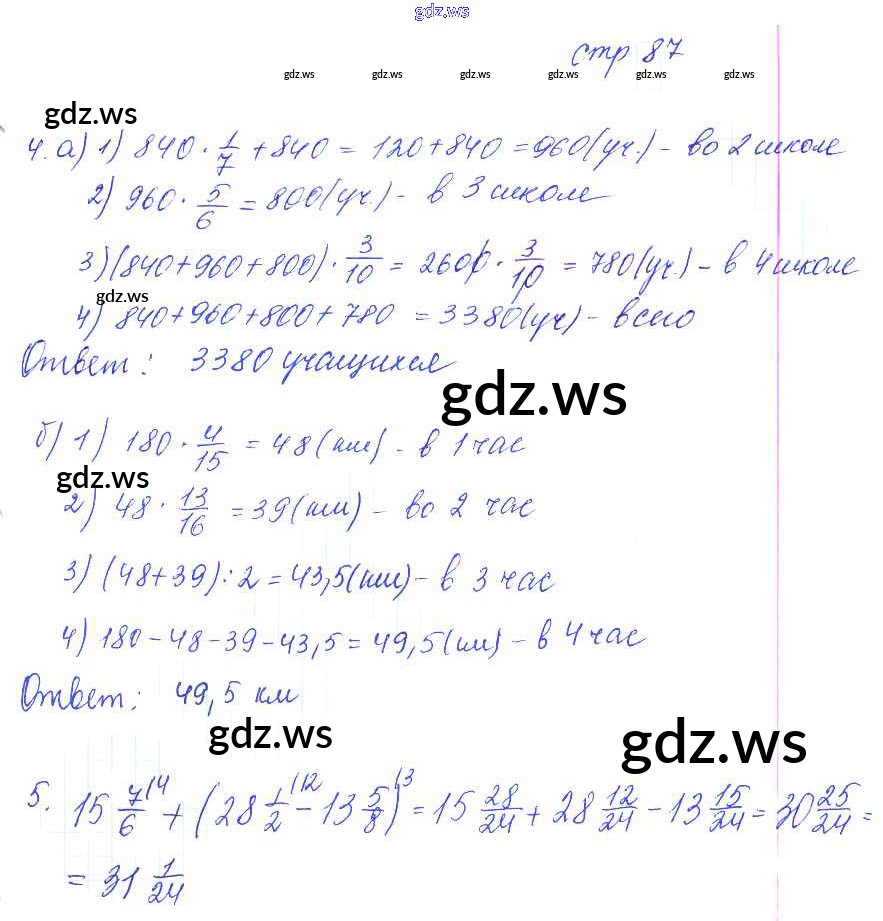 gdz.ws
стр 87
gdz.ws gdz.ws gdz.ws gdz.ws gdz.ws gdz.ws
gdz.ws
4. а) 1) 840 · 1/7 + 840 = 120 + 840 = 960 (уч.) - во 2 школе
2) 960 · 5/6 = 800 (уч.) - в 3 школе
3) (840 + 960 + 800) · 3/10 = 2600 · 3/10 = 780 (уч.) - в 4 школе
gdz.ws
4) 840 + 960 + 800 + 780 = 3380 (уч) - всего
Ответ: 3380 учащихся
gdz.ws
б) 1) 180 · 4/15 = 48 (км) - в 1 час
gdz.ws
2) 48 · 13/16 = 39 (км) - во 2 час
3) (48 + 39) : 2 = 43,5 (км) - в 3 час
4) 180 - 48 - 39 - 43,5 = 49,5 (км) - в 4 час
Ответ: 49,5 км
gdz.ws
gdz.ws
5. 15 7/6 (4 + (28 1/2 (12 - 13 5/8) (3 = 15 28/24 + 28 12/24 - 13 15/24 = 30 25/24 =
= 31 1/24